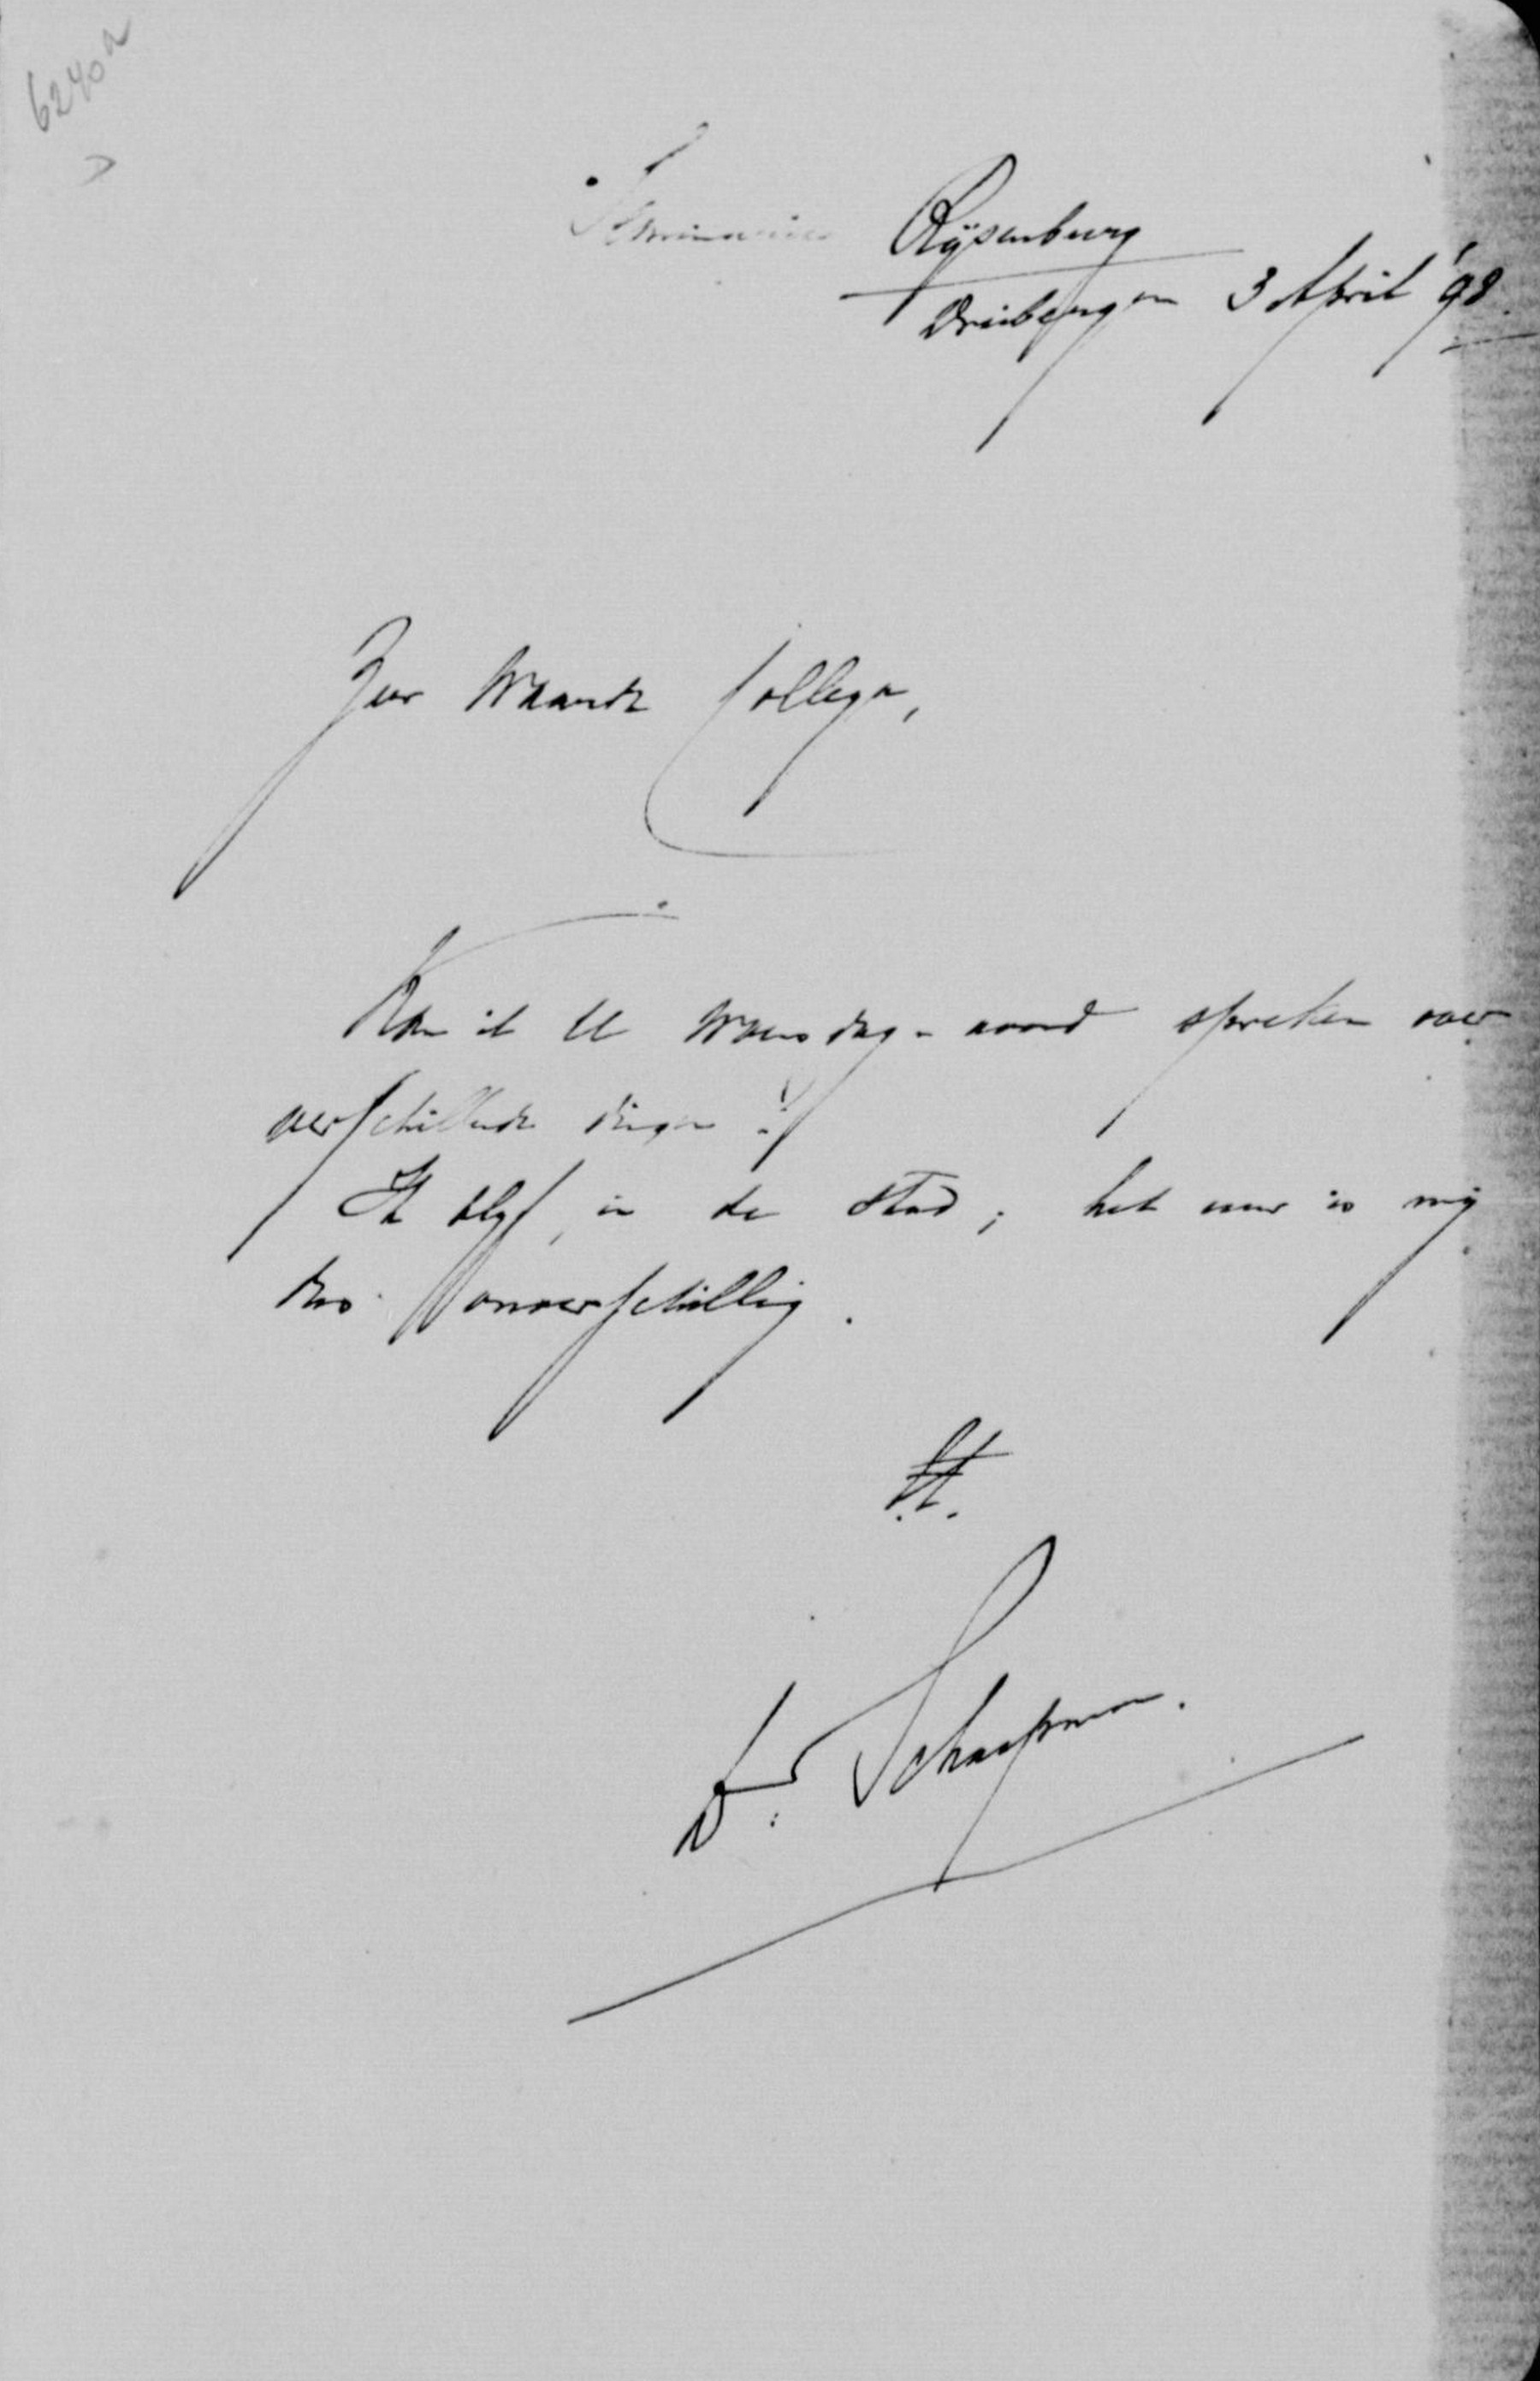 6240a
Seminarie Rijsenburg
Driebergen 3 April '98.
Zeer Waarde Collega,
Kan ik U Woensdag-avond spreken over
verschillende dingen?
Ik blijf in de stad; het uur is mij
dus onverschillig.
tt.
Dr. Schaepman.